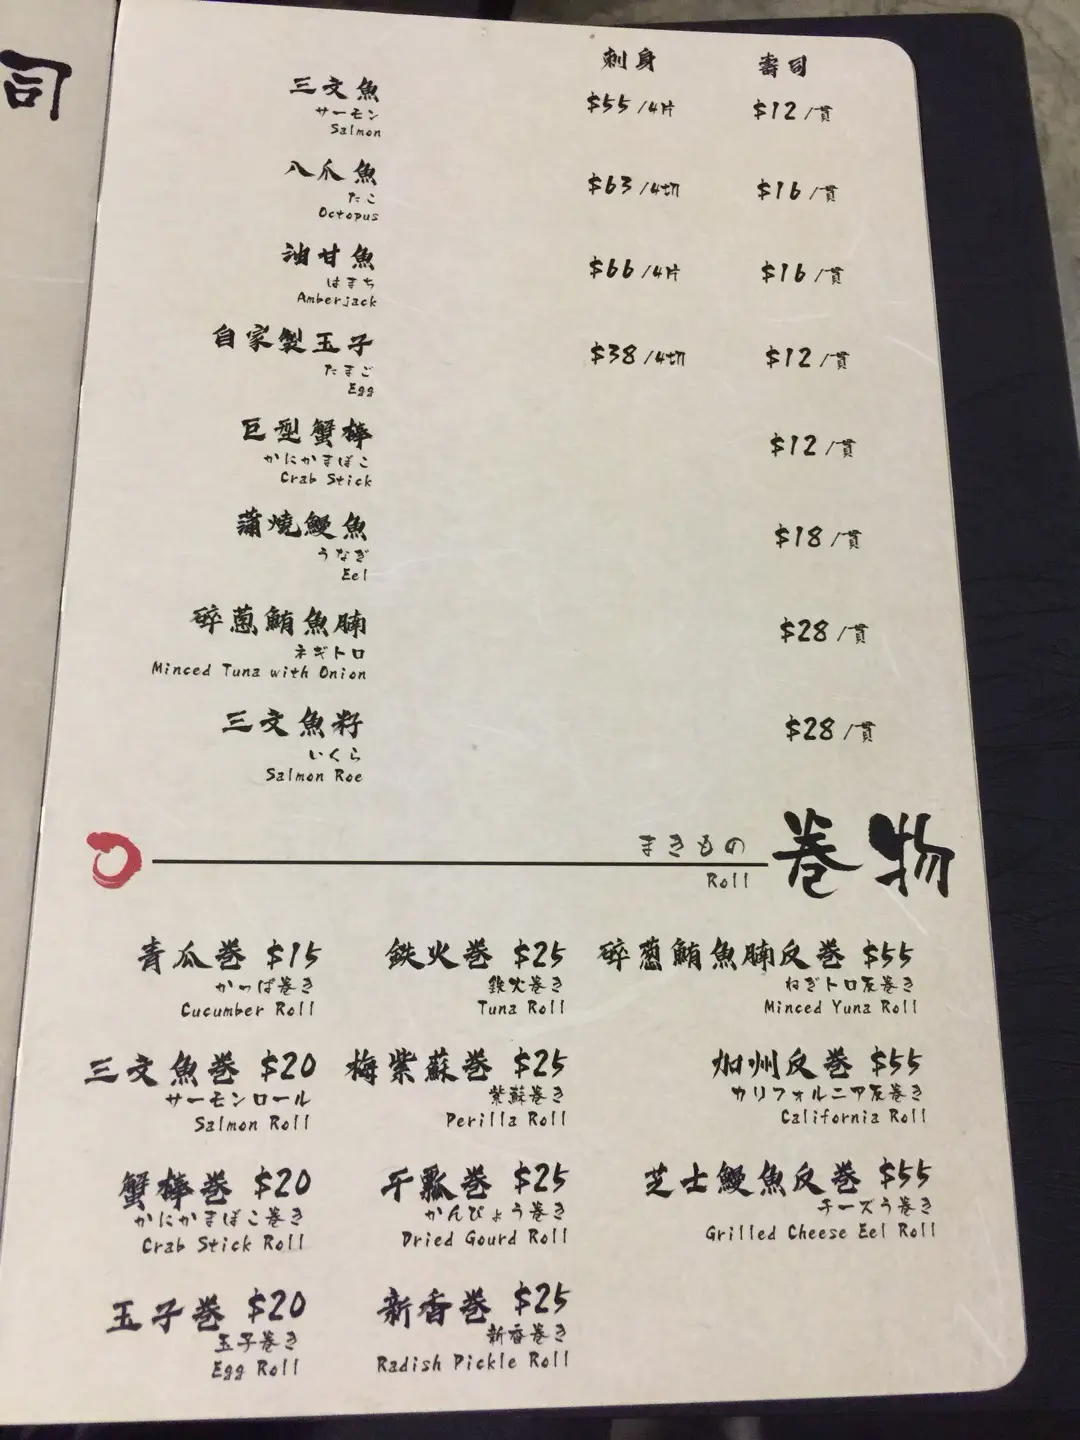 司
刺身 壽司
三文魚 $55/4片 $12/貫
サーモン
Salmon
八爪魚 $63/4切 $16/貫
たこ
Octopus
油甘魚 $66/4片 $16/貫
はまち
Amberjack
自家製玉子 $38/4切 $12/貫
たまご
Egg
巨型蟹棒 $12/貫
かにかまぼこ
Crab Stick
蒲燒鰻魚 $18/貫
うなぎ
Eel
碎蔥鮪魚腩 $28/貫
ネギトロ
Minced Tuna with Onion
三文魚籽 $28/貫
いくら
Salmon Roe
まきもの 巻物
Roll
青瓜巻 $15 鉄火巻 $25 碎蔥鮪魚腩反巻 $55
かっぱ巻き 鉄火巻き ねぎトロ反巻き
Cucumber Roll Tuna Roll Minced Yuna Roll
三文魚巻 $20 梅紫蘇巻 $25 加州反巻 $55
サーモンロール 紫蘇巻き カリフォルニア反巻き
Salmon Roll Perilla Roll California Roll
蟹棒巻 $20 干瓢巻 $25 芝士鰻魚反巻 $55
かにかまぼこ巻き かんぴょう巻き チーズう巻き
Crab Stick Roll Dried Gourd Roll Grilled Cheese Eel Roll
玉子巻 $20 新香巻 $25
玉子巻き 新香巻き
Egg Roll Radish Pickle Roll